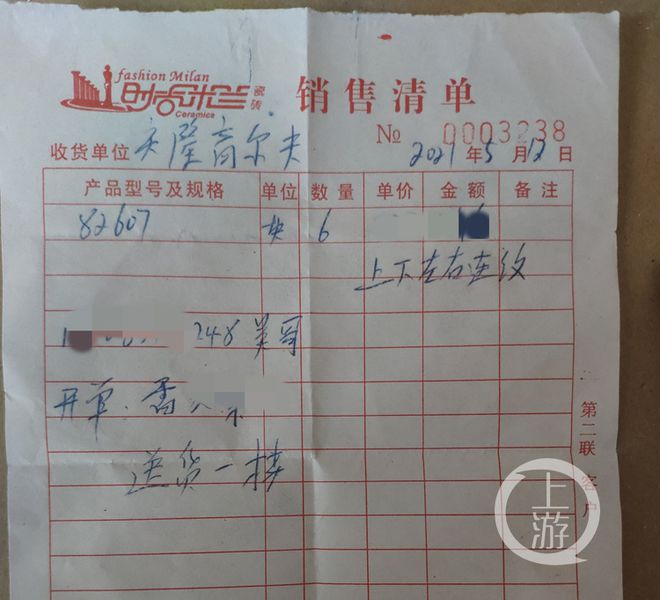 fashion Milan
时尚米兰 瓷砖
Ceramics
销售清单
№ 0003238
收货单位 天隆高尔夫 2021年5月12日
产品型号及规格 单位 数量 单价 金额 备注
82607 块 6
上下左右连纹
248 美哥
开单:
送货一楼
第二联 客户
上游